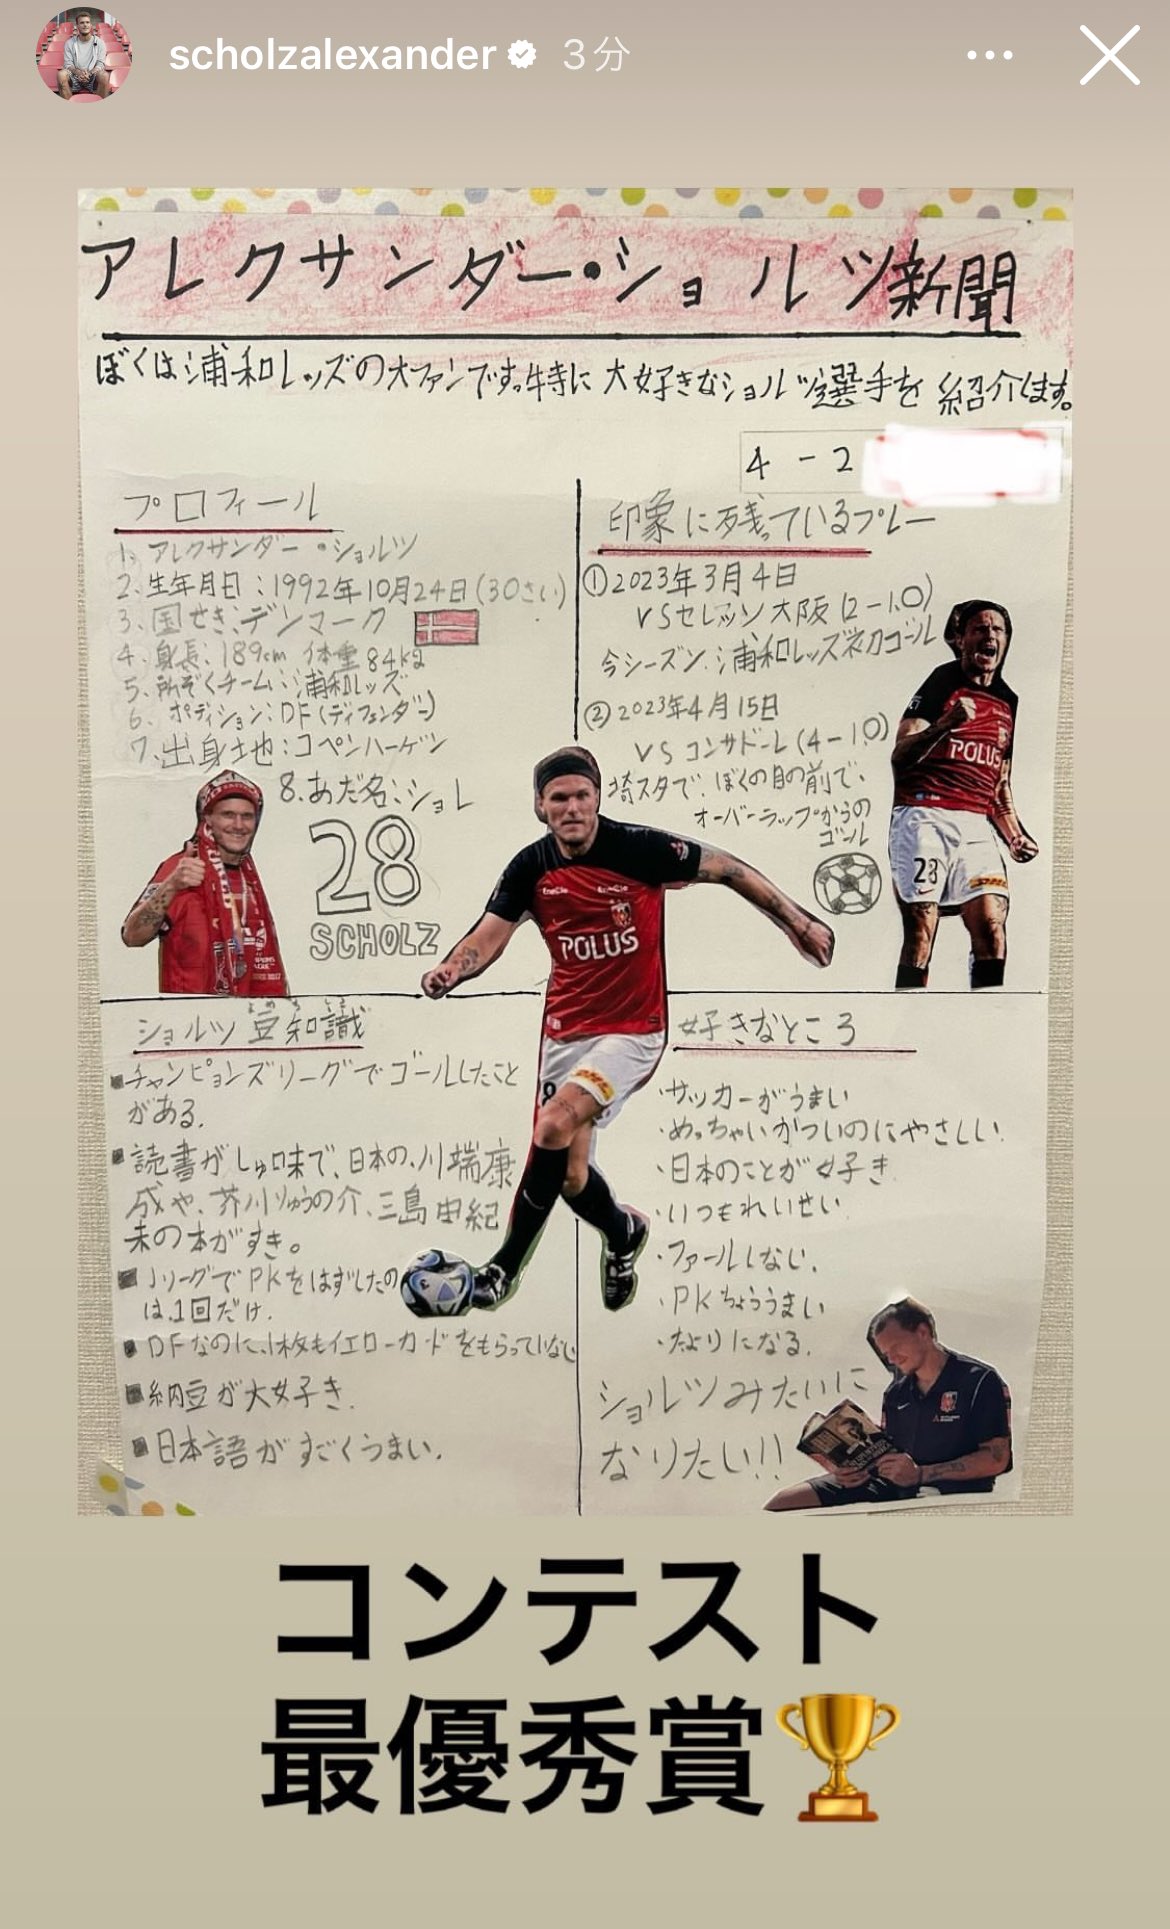 scholzalexander 3分
アレクサンダー・ショルツ新聞
ぼくは浦和レッズの大ファンです。特に大好きなショルツ選手を紹介します。
4-2
プロフィール
1、アレクサンダー・ショルツ
2、生年月日:1992年10月24日(30さい)
3、国せき:デンマーク
4、身長:189cm 体重84kg
5、所ぞくチーム:浦和レッズ
6、ポディション:DF(ディフェンダー)
7、出身土地:コペンハーゲン
8、あだ名:ショレ
28
SCHOLZ
印象に残っているプレー
①2023年3月4日
VSセレッソ大阪(2-1.○)
今シーズン、浦和レッズ初ゴール
②2023年4月15日
VSコンサドーレ(4-1.○)
埼スタで、ぼくの目の前で、
オーバーラップからの
ゴール
POLUS
28
EneCle EneCle
POLUS
ショルツ豆知識
まめちしき
■チャンピョンズリーグでゴールしたこと
がある.
■読書がしゅ味で、日本の、川端康
成や、芥川りゅうの介、三島由紀
夫の本がすき。
■JリーグでPKをはずしたの
は、1回だけ.
■DFなのに、1枚もイエローカードをもらっていない
■納豆が大好き.
■日本語がすごくうまい.
好きなところ
・サッカーがうまい
・めっちゃいかついのにやさしい.
・日本のことが好き
・いつもれいせい
・ファールしない.
・PKちょううまい
・たよりになる.
ショルツみたいに
なりたい!!
コンテスト
最優秀賞🏆